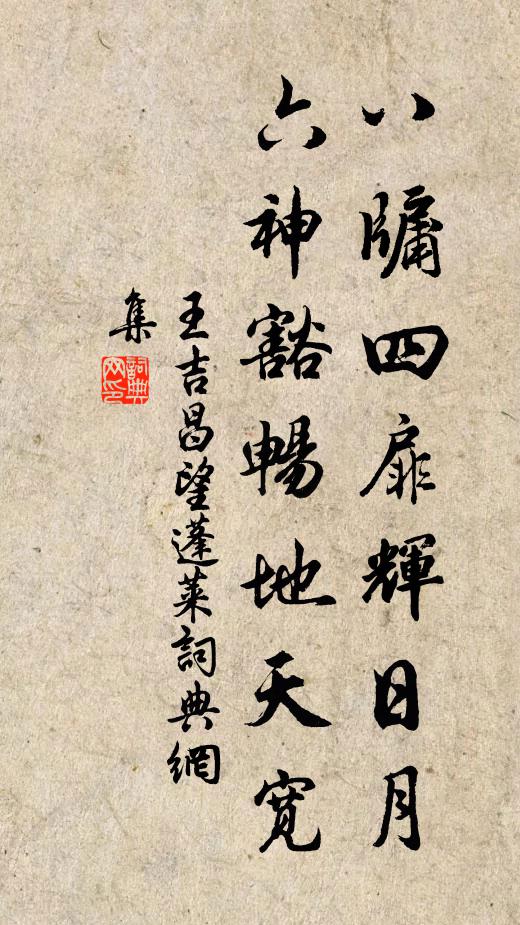 八牖四扉輝日月
六神豁暢地天寬
王吉昌望蓬萊詞典網
集
詞典
网印